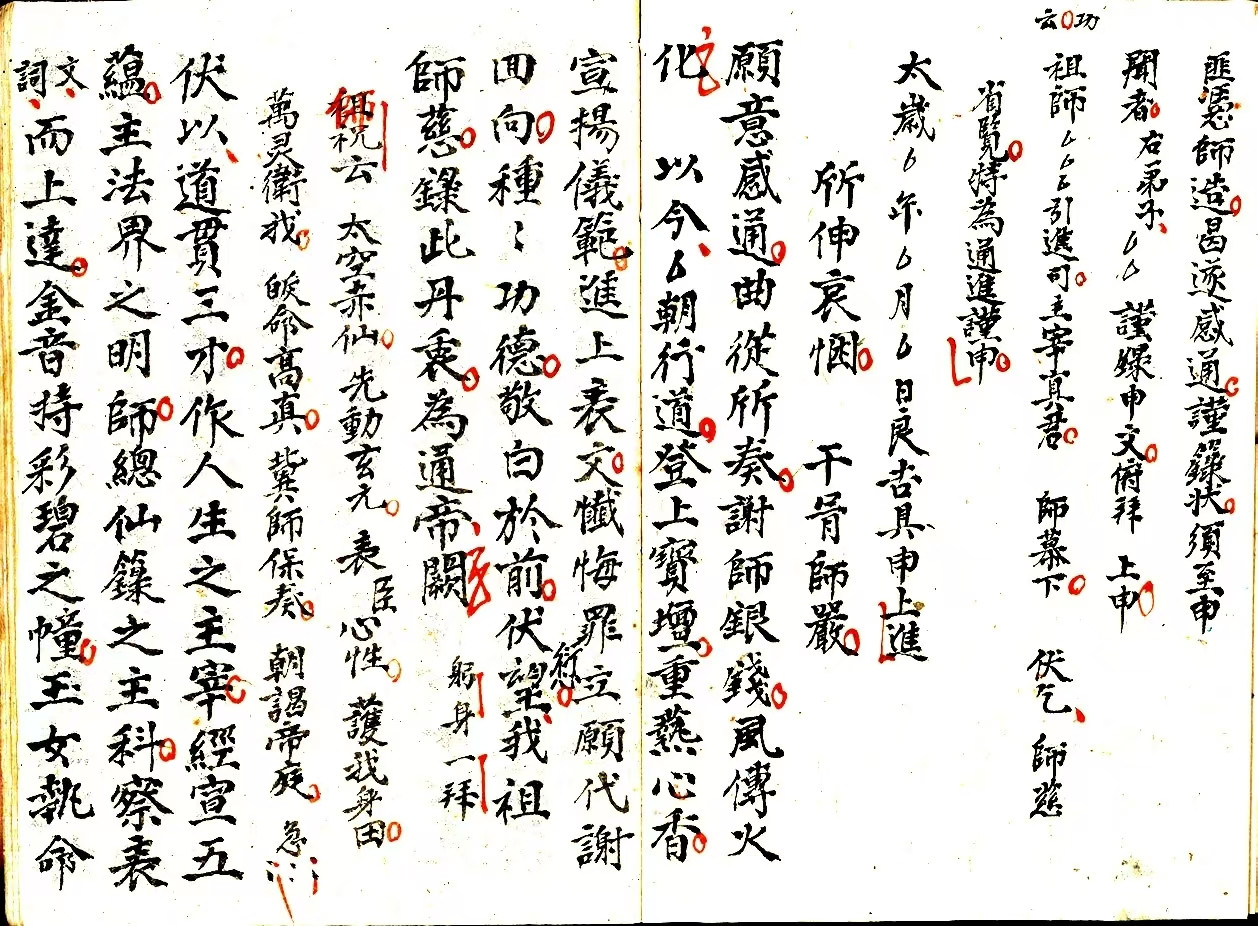 匪憑師造曷遂感通謹籙狀須至申
聞者右弟子厶厶謹錄申文俯拜 上申
功云
祖師厶厶厶引進司主宰真君 師慕下 伏乞 師慈
省覽特為通進謹申
太歲厶年厶月厶日良吉具申上進
所伸哀悃 干冐師嚴
願意感通曲從所奏謝師銀錢風傳火
化 以今厶朝行道登上寶壇重爇心香
宣揚儀範進上表文懺悔罪愆立願代謝
回向種〻功德敬白於前伏望我祖
師慈錄此丹衷為通帝闕 躬身一拜
師祝云 太空赤仙 先動玄元 表臣心性 護我身田
萬灵衛我 皈命髙真 冀師保奏 朝謁帝庭 急〻
伏以道貫三才作人生之主宰經宣五
蘊主法界之明師總仙籙之主科察表
文詞而上達金音持彩碧之幢玉女執命